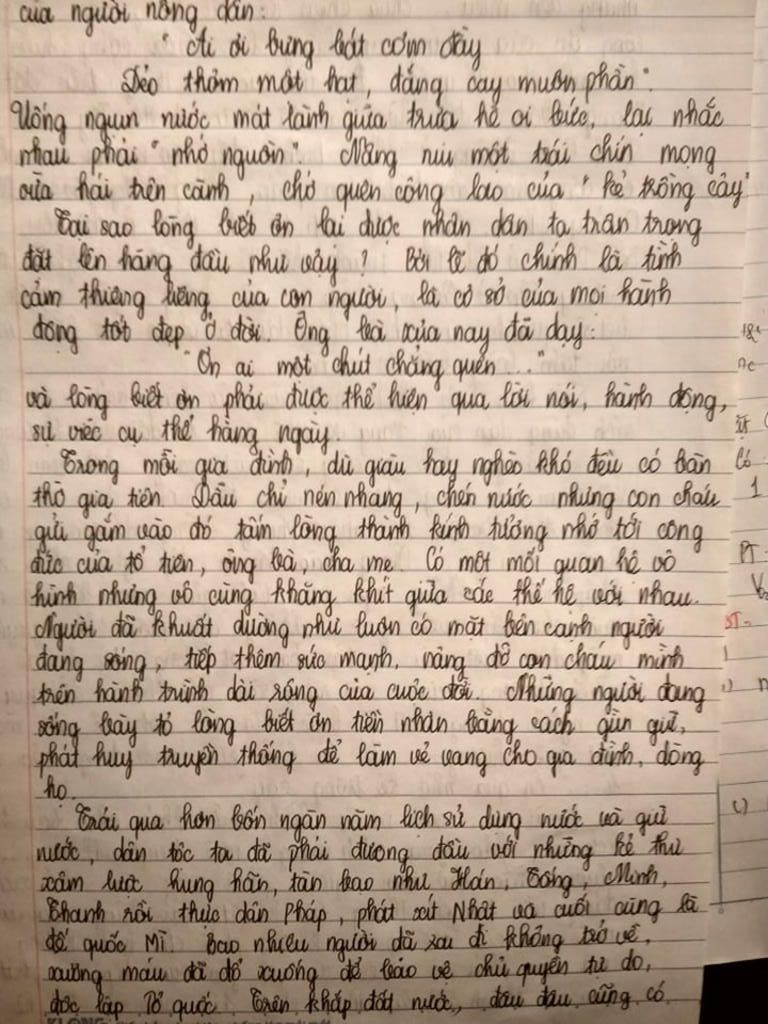 của người nông dân:
" Ai ơi bưng bát cơm đầy
Dẻo thơm một hạt, đắng cay muôn phần".
Uống ngụm nước mát lành giữa trưa hè oi bức, lại nhắc
nhau phải " nhớ nguồn". Nâng niu một trái chín mọng
vừa hái trên cành, chớ quên công lao của " kẻ trồng cây"
Tại sao lòng biết ơn lại được nhân dân ta trân trọng
đặt lên hàng đầu như vậy ? Bởi lẽ đó chính là tình
cảm thiêng liêng của con người, là cơ sở của mọi hành
động tốt đẹp ở đời. Ông bà xưa nay đã dạy:
"Ơn ai một chút chẳng quên ..."
và lòng biết ơn phải được thể hiện qua lời nói, hành động,
sự việc cụ thể hàng ngày.
Trong mỗi gia đình, dù giàu hay nghèo khó đều có bàn
thờ gia tiên. Dẫu chỉ nén nhang, chén nước nhưng con cháu
gửi gắm vào đó tấm lòng thành kính tưởng nhớ tới công
đức của tổ tiên, ông bà, cha mẹ. Có một mối quan hệ vô
hình nhưng vô cùng khăng khít giữa các thế hệ với nhau.
Người đã khuất dường như luôn có mặt bên cạnh người
đang sống, tiếp thêm sức mạnh, nâng đỡ con cháu mình
trên hành trình dài rộng của cuộc đời. Những người đang
sống bày tỏ lòng biết ơn tiền nhân bằng cách gìn giữ,
phát huy truyền thống để làm vẻ vang cho gia đình, dòng
họ.
Trải qua hơn bốn ngàn năm lịch sử dựng nước và giữ
nước, dân tộc ta đã phải đương đầu với những kẻ thù
xâm lược hung hãn, tàn bạo như Hán, Tống, Minh,
Thanh rồi thực dân Pháp, phát xít Nhật và cuối cùng là
đế quốc Mĩ. Bao nhiêu người đã ra đi không trở về,
xương máu đã đổ xuống để bảo vệ chủ quyền tự do,
độc lập Tổ quốc. Trên khắp đất nước, đâu đâu cũng có